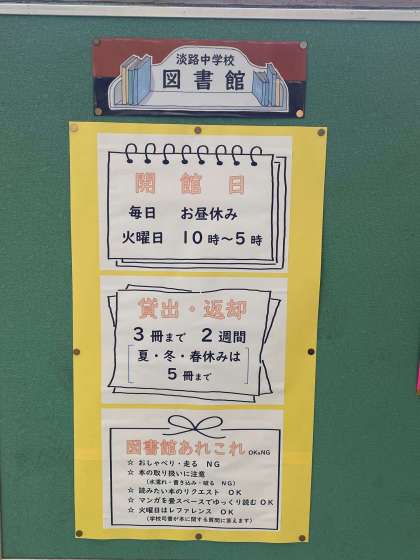 淡路中学校
図書館
開館日
毎日 お昼休み
火曜日 10時～5時
貸出・返却
3冊まで 2週間
夏・冬・春休みは
5冊まで
図書館あれこれ OK&NG
☆ おしゃべり・走る NG
☆ 本の取り扱いに注意
(水濡れ・書き込み・破る NG)
☆ 読みたい本のリクエスト OK
☆ マンガを畳スペースでゆっくり読む OK
☆ 火曜日はレファレンス OK
(学校司書が本に関する質問に答えます)